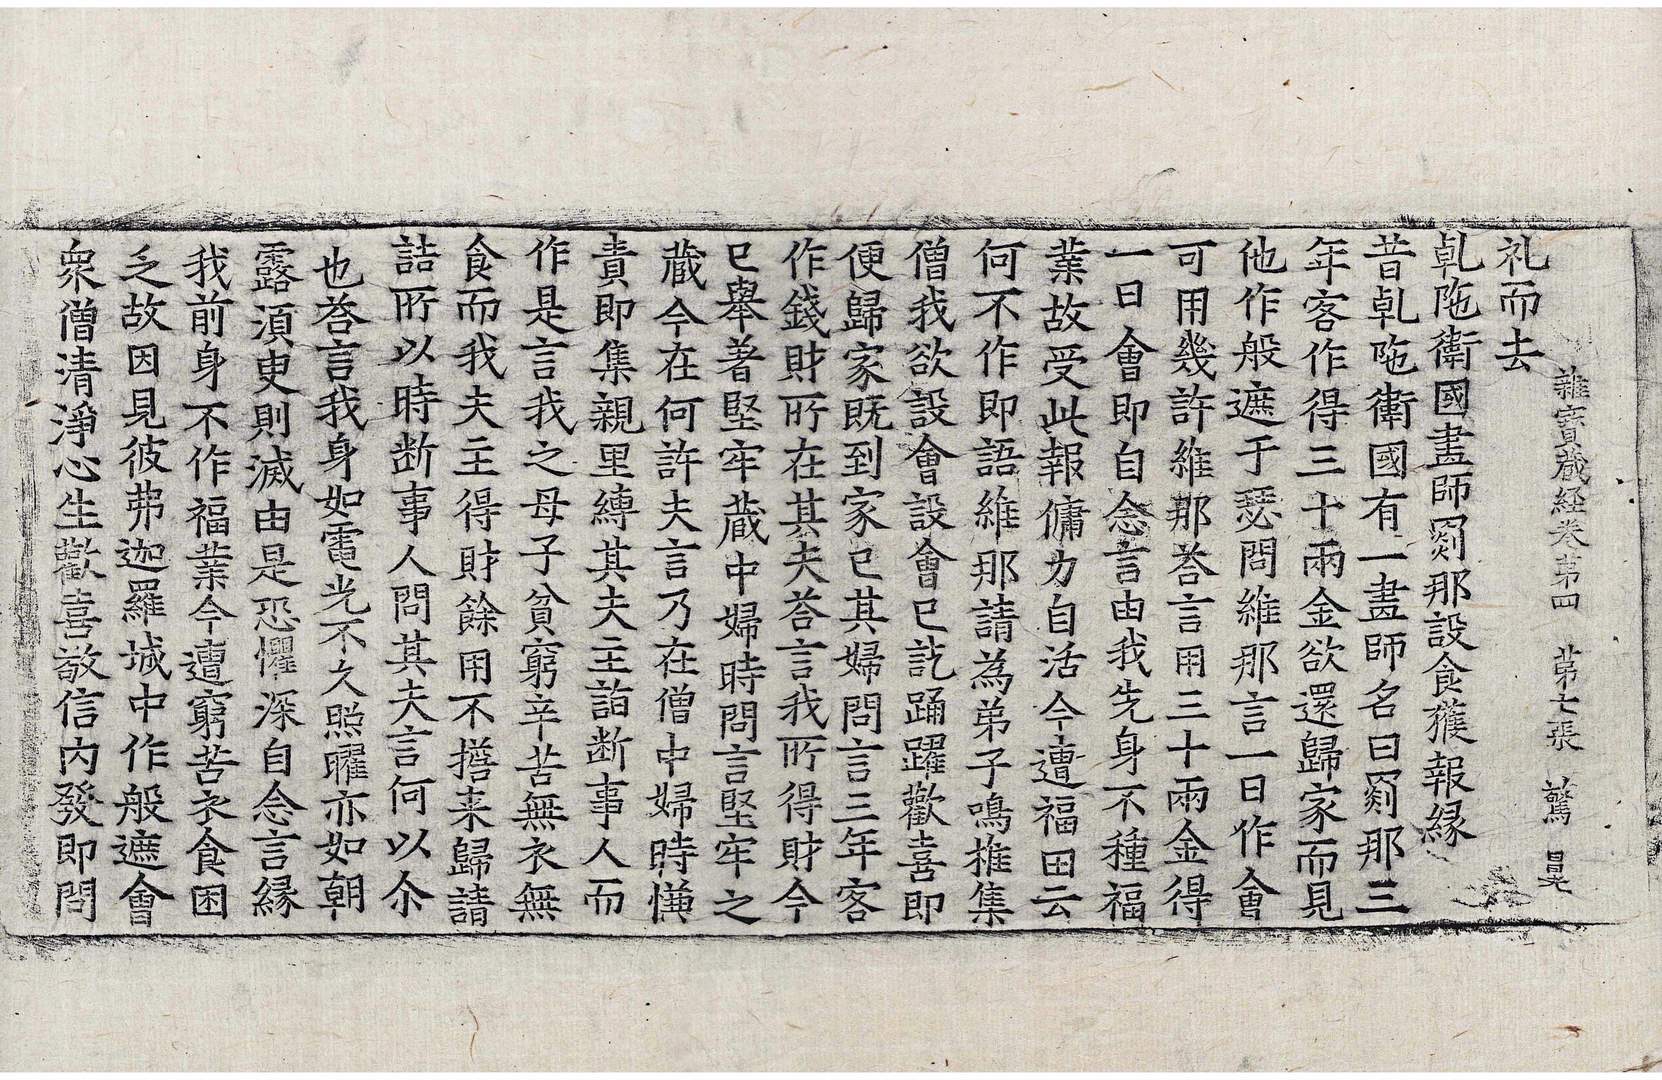 雜寶藏経卷苐四 苐七張 驚 昌
礼而去
乹陁衛國畫師罽那設食獲報緣
昔乹陁衛國有一畫師名曰罽那三
年客作得三十兩金欲還歸家而見
他作般遮于瑟問維那言一日作會
可用幾許維那荅言用三十兩金得
一日會即自念言由我先身不種福
業故受此報傭力自活今遭福田云
何不作即語維那請為弟子鳴椎集
僧我欲設會設會已訖踊躍歡喜即
便歸家既到家已其婦問言三年客
作錢財所在其夫荅言我所得財今
已舉著堅牢藏中婦時問言堅牢之
藏今在何許夫言乃在僧中婦時慊
責即集親里縛其夫主詣断事人而
作是言我之母子貧窮辛苦無衣無
食而我夫主得財餘用不擔来歸請
詰所以時断事人問其夫言何以尒
也荅言我身如電光不久照曜亦如朝
露須臾則滅由是恐懼深自念言緣
我前身不作福業今遭窮苦衣食困
乏故因見彼弗迦羅城中作般遮會
衆僧清淨心生歡喜敬信内發即問